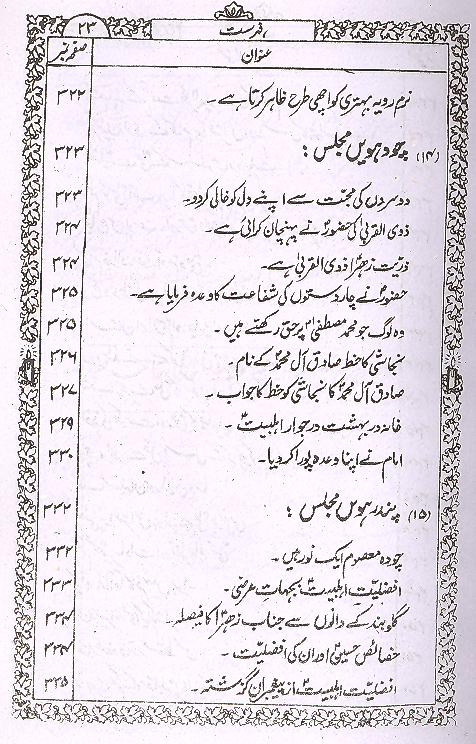 ۲۳
فہرست
عنوان صفحہ نمبر
نرم رویہ بہتری کو اچھی طرح ظاہر کرتا ہے۔ ۳۲۲
(۱۴) چودہویں مجلس : ۳۲۳
دوسروں کی محبت سے اپنے دل کو خالی کردو۔ ۳۲۳
ذوی القربیٰ کی حضورؐ نے پہنچان کرائی ہے۔ ۳۲۴
ذریت زہراؑ ذوی القربیٰ ہے۔ ۳۲۴
حضورؐ نے چار دستوں کی شفاعت کا وعدہ فرمایا ہے۔ ۳۲۵
وہ لوگ جو محمد مصطفیٰؐ پر حق رکھتے ہیں۔ ۳۲۵
نجاشی کا خط صادق آل محمدؑ کے نام۔ ۳۲۶
صادق آل محمدؑ کا نجاشی کو خط کا جواب۔ ۳۲۷
خانہ در بہشت در جوار اہلبیتؑ۔ ۳۲۹
امام نے اپنا وعدہ پورا کردیا۔ ۳۳۰
(۱۵) پندرہویں مجلس : ۳۳۲
چودہ معصوم ایک نور ہیں۔ ۳۳۲
افضلیت اہلبیتؑ بجہات عرضی۔ ۳۳۳
گلوبند کے دانوں سے جناب زہراؑ کا فیصلہ۔ ۳۳۴
خصائص حسینؑ اور ان کی افضلیت۔ ۳۳۴
افضلیت اہلبیتؑ از پیغمبران گذشتہ۔ ۳۳۵